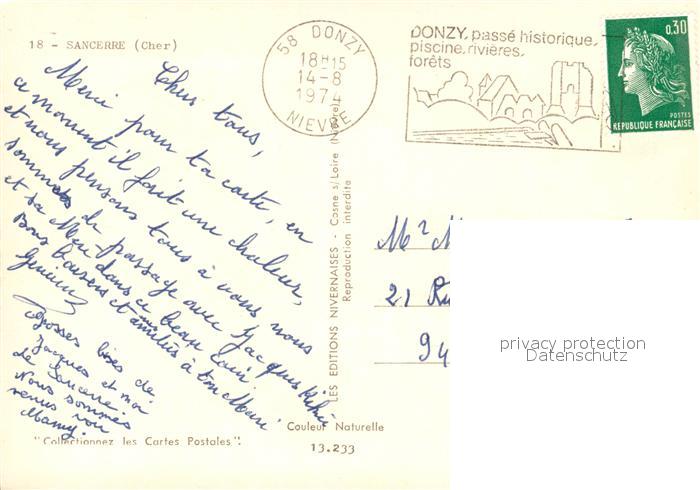 18 - SANCERRE (Cher)
58 DONZY
18H15
14-8
1974
NIEVRE
DONZY, passé historique,
piscine, rivières,
forêts
0,30
POSTES
REPUBLIQUE FRANÇAISE
Chers tous,
Merci pour ta carte, en
ce moment il fait une chaleur,
et nous pensons tous à vous nous
sommes de passage avec Jacques
et sa Mère dans ce beau coin.
Bons baisers et amitiés à ton Mari
Grosses bises de
Jacques et moi
de Sancerre.
Nous sommes
venus voir
Mamy.
LES EDITIONS NIVERNAISES - Cosne s/Loire (Nièvre)
Reproduction interdite
Mr M
21 Ru
94
privacy protection
Datenschutz
Couleur Naturelle
"Collectionnez les Cartes Postales".
13.233